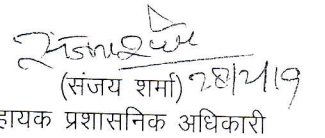 (संजय शर्मा) 28/2/19
हायक प्रशासनिक अधिकारी